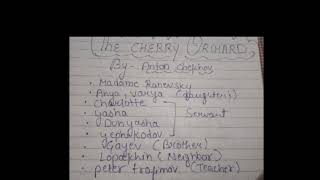 THE CHERRY ORCHARD
By- Anton Chekhov
• Madame Ranevsky
• Anya, Varya (daughters)
• Charlotte
• yasha
• Dunyasha
• yephikodov
Servant
• Gayev (Brother)
• Lopakhin (Neighbor)
• peter trofimov (Teacher)